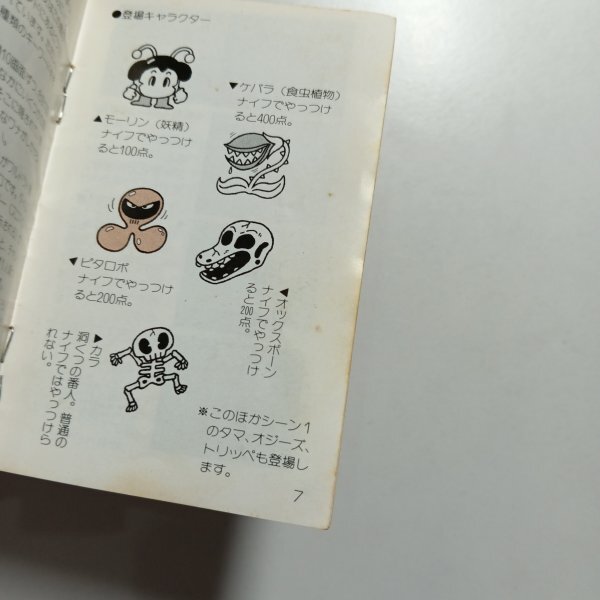 ●登場キャラクター
▲モーリン（妖精）
ナイフでやっつけ
ると100点。
▼ケパラ（食虫植物）
ナイフでやっつけ
ると400点。
◀ピタロポ
ナイフでやっつけ
ると200点。
◀オックスボーン
ナイフでやっつけ
ると200点。
▶カラ
洞くつの番人。普通の
ナイフではやっつけら
れない。
※このほかシーン1
のタマ、オジーズ、
トリッペも登場し
ます。
7